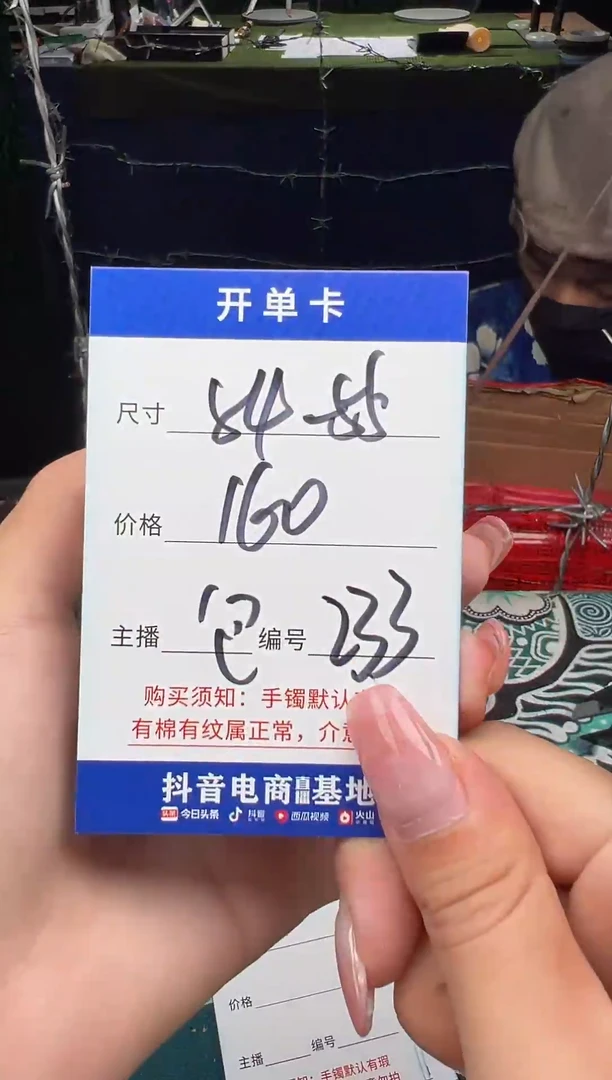 开单卡
尺寸 54-55
价格 160
主播 包 编号 233
购买须知：手镯默认
有棉有纹属正常，介意
抖音电商直播基地
头条 今日头条 抖音 西瓜视频 火山
价格
主播 编号
手镯默认有瑕